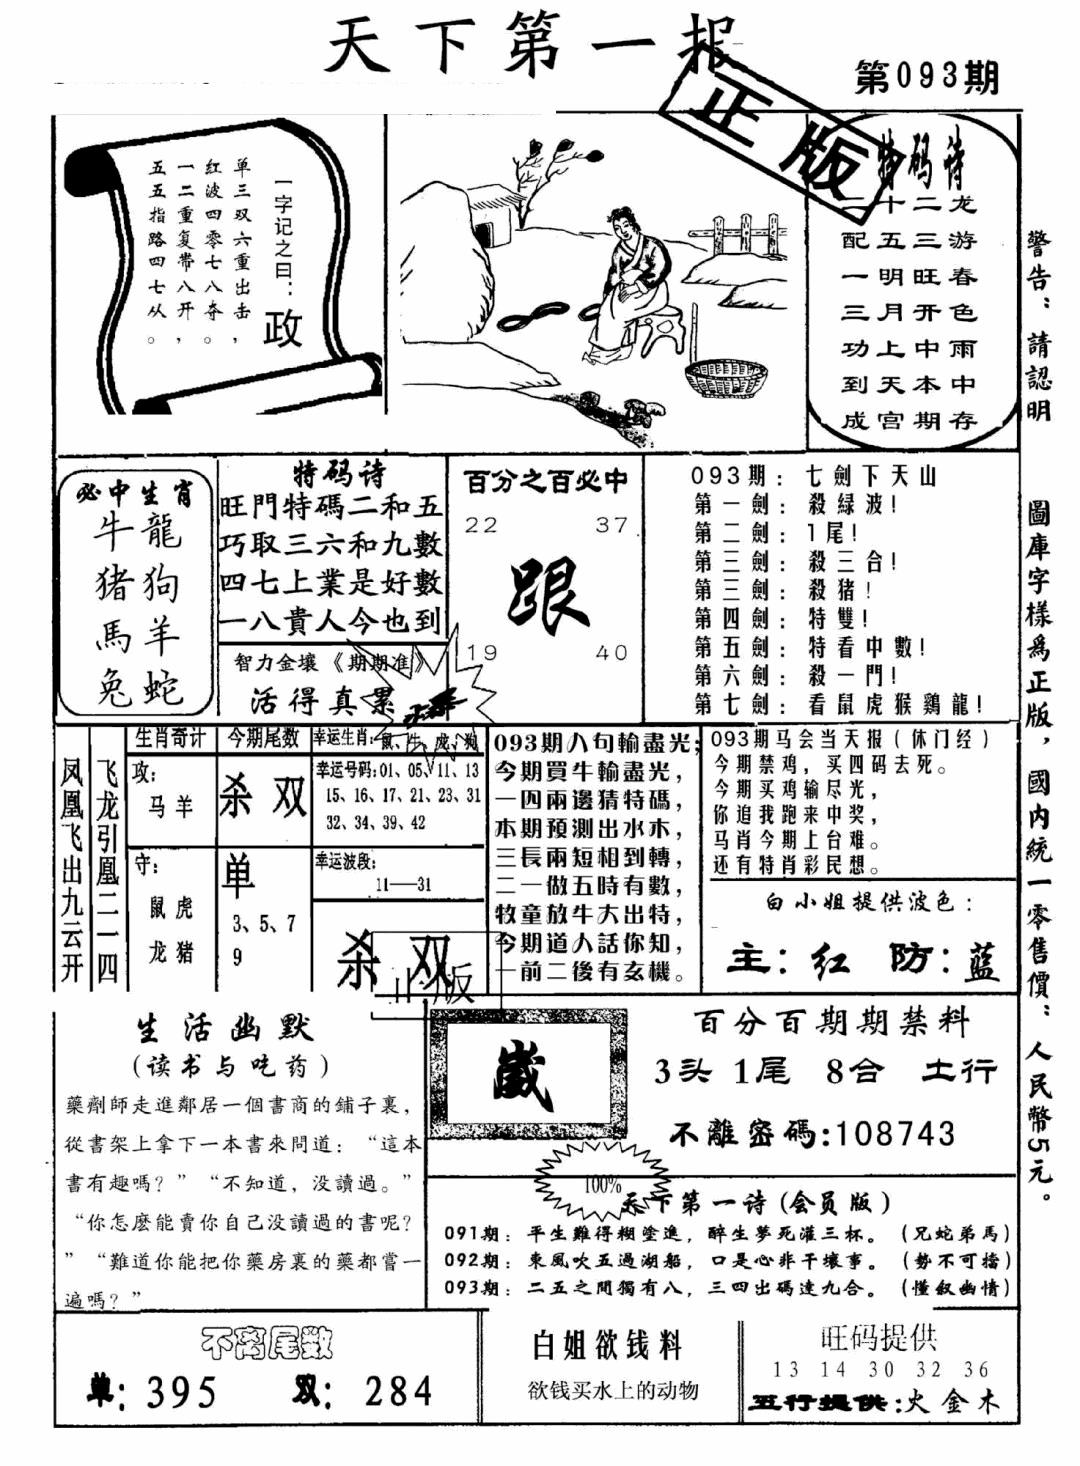 天下第一报
第093期
正版
一字记之曰：政
单三双六重出击，
红波四零七八夺。
一二重复带八开，
五五指路四七从。
特码诗
二十二龙
配五三游
一明旺春
三月开色
功上中雨
到天本中
成宫期存
警告：請認明
圖庫字樣爲正版，國内統一零售價：人民幣5元。
必中生肖
牛龍
猪狗
馬羊
兔蛇
特码诗
旺門特碼二和五
巧取三六和九數
四七上業是好數
一八貴人今也到
智力金壤《期期准》
活得真累
百分之百必中
22 37
跟
19 40
093期：七劍下天山
第一劍：殺緑波！
第二劍：1尾！
第三劍：殺三合！
第三劍：殺猪！
第四劍：特雙！
第五劍：特看中數！
第六劍：殺一門！
第七劍：看鼠虎猴鷄龍！
凤凰飞出九云开
飞龙引凰二一四
生肖奇计
攻：
马羊
守：
鼠虎
龙猪
今期尾数
杀双
单
3、5、7
9
幸运生肖：鼠、牛、虎、狗
幸运号码：01、05、11、13
15、16、17、21、23、31
32、34、39、42
幸运波段：
11——31
杀双
正版
093期八句輸盡光；
今期買牛輸盡光，
一四兩邊猜特碼，
本期預測出水木，
三長兩短相到轉，
二一做五時有數，
牧童放牛大出特，
今期道人話你知，
一前二後有玄機。
093期马会当天报（休门经）
今期禁鸡，买四码去死。
今期买鸡输尽光，
你追我跑来中奖，
马肖今期上台难。
还有特肖彩民想。
白小姐提供波色：
主：红 防：蓝
生活幽默
（读书与吃药）
藥劑師走進鄰居一個書商的鋪子裏，
從書架上拿下一本書來問道：“這本
書有趣嗎？”“不知道，没讀過。”
“你怎麼能賣你自己没讀過的書呢？
”“難道你能把你藥房裏的藥都嘗一
遍嗎？”
歲
百分百期期禁料
3头 1尾 8合 土行
不離密碼：108743
100%
天下第一诗（会员版）
091期：平生難得糊塗進，醉生夢死灌三杯。（兄蛇弟馬）
092期：東風吹五過湖船，口是心非干壞事。（勢不可擋）
093期：二五之間獨有八，三四出碼達九合。（懂叙幽情）
不离尾数
单：395 双：284
白姐欲钱料
欲钱买水上的动物
旺码提供
13 14 30 32 36
五行提供：火金木